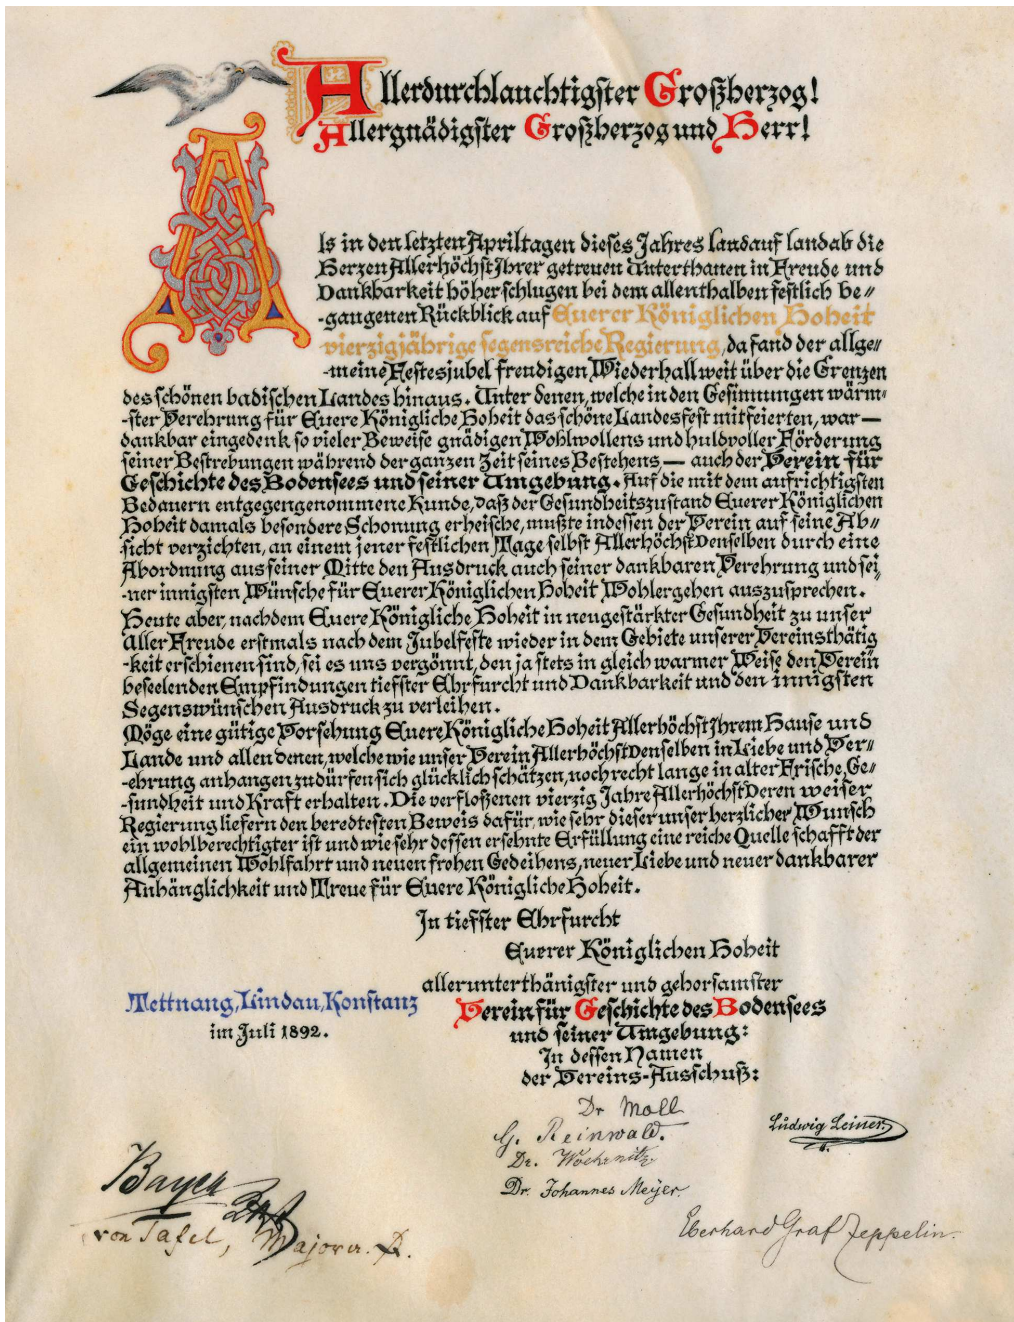 Allerdurchlauchtigster Großherzog!
Allergnädigster Großherzog und Herr!
Als in den letzten Apriltagen dieses Jahres landauf landab die
Herzen Allerhöchst Ihrer getreuen Unterthanen in Freude und
Dankbarkeit höher schlugen bei dem allenthalben festlich be„
-gangenen Rückblick auf Euerer Königlichen Hoheit
vierzigjährige segensreiche Regierung, da fand der allge„
-meine Festesjubel freudigen Wiederhall weit über die Grenzen
des schönen badischen Landes hinaus. Unter denen, welche in den Gesinnungen wärm„
-ster Verehrung für Euere Königliche Hoheit das schöne Landesfest mitfeierten, war —
dankbar eingedenk so vieler Beweise gnädigen Wohlwollens und huldvoller Förderung
seiner Bestrebungen während der ganzen Zeit seines Bestehens — auch der Verein für
Geschichte des Bodensees und seiner Umgebung. Auf die mit dem aufrichtigsten
Bedauern entgegengenommene Kunde, daß der Gesundheitszustand Euerer Königlichen
Hoheit damals besondere Schonung erheische, mußte indessen der Verein auf seine Ab„
-sicht verzichten, an einem jener festlichen Tage selbst Allerhöchst Denselben durch eine
Abordnung aus seiner Mitte den Ausdruck auch seiner dankbaren Verehrung und sei„
-ner innigsten Wünsche für Euerer Königlichen Hoheit Wohlergehen auszusprechen.
Heute aber, nachdem Euere Königliche Hoheit in neugestärkter Gesundheit zu unser
Aller Freude erstmals nach dem Jubelfeste wieder in dem Gebiete unserer Vereinsthätig
-keit erschienen sind, sei es uns vergönnt, den ja stets in gleich warmer Weise den Verein
beseelenden Empfindungen tiefster Ehrfurcht und Dankbarkeit und den innigsten
Segenswünschen Ausdruck zu verleihen.
Möge eine gütige Vorsehung Euere Königliche Hoheit Allerhöchst Ihrem Hause und
Lande und allen denen, welche wie unser Verein Allerhöchst Denselben in Liebe und Ver„
-ehrung anhangen zu dürfen sich glücklich schätzen, noch recht lange in alter Frische, Ge„
-sundheit und Kraft erhalten. Die verfloßenen vierzig Jahre Allerhöchst Deren weiser
Regierung liefern den beredtesten Beweis dafür, wie sehr dieser unser herzlicher Wunsch
ein wohlberechtigter ist und wie sehr dessen ersehnte Erfüllung eine reiche Quelle schafft der
allgemeinen Wohlfahrt und neuen frohen Gedeihens, neuer Liebe und neuer dankbarer
Anhänglichkeit und Treue für Euere Königliche Hoheit.
In tiefster Ehrfurcht
Euerer Königlichen Hoheit
allerunterthänigster und gehorsamster
Tettnang, Lindau, Konstanz
Verein für Geschichte des Bodensees
im Juli 1892.
und seiner Umgebung:
In dessen Namen
der Vereins-Ausschuß:
Dr Moll
G. Reinwald.
Ludwig Leiner.
Dr. Johannes Meyer.
Bayer
von Tafel, Major a. D.
Eberhard Graf Zeppelin.